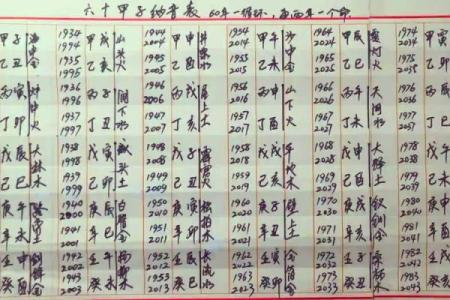 六十甲子纳音表 60年一循环,每两年一个命.
甲子 海中金 1934 1994 甲戌 山头火 1944 2004 甲申 井泉水 1954 2014 甲午 沙中金 1964 2024 甲辰 覆灯火 1974 2034 甲寅
乙丑 1935 1995 乙亥 1945 2005 乙酉 1955 2015 乙未 1965 2025 乙巳 1975 2035 乙卯
丙寅 炉中火 1936 1996 丙子 涧下水 1946 2006 丙戌 屋上土 1956 2016 丙申 山下火 1966 2026 丙午 天河水 1976 2036 丙辰
丁卯 1937 1997 丁丑 1947 2007 丁亥 1957 2017 丁酉 1967 2027 丁未 1977 2037 丁巳
戊辰 大林木 1938 1998 戊寅 城头土 1948 2008 戊子 霹雳火 1958 2018 戊戌 平地木 1968 2028 戊申 大驿土 1978 2038 戊午
己巳 1939 1999 己卯 1949 2009 己丑 1959 2019 己亥 1969 2029 己酉 1979 2039 己未
庚午 路旁土 1940 2000 庚辰 白蜡金 1950 2010 庚寅 松柏木 1960 2020 庚子 壁上土 1970 2030 庚戌 钗钏金 1980 2040 庚申
辛未 1941 2001 辛巳 1951 2011 辛卯 1961 2021 辛丑 1971 2031 辛亥 1981 2041 辛酉
壬申 剑锋金 1942 2002 壬午 杨柳木 1952 2012 壬辰 长流水 1962 2022 壬寅 金箔金 1972 2032 壬子 桑柘木 1982 2042 壬戌
癸酉 1943 2003 癸未 1953 2013 癸巳 1963 2023 癸卯 1973 2033 癸丑 1983 2043 癸亥